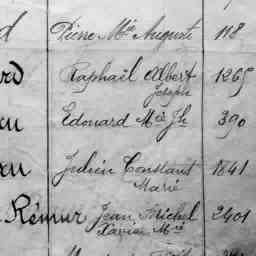 d Pierre Mie Auguste 118
Raphaël Albert 1265
Joseph
Edouard Mie Jh 390
au Julien Constant 1841
Marie
Rémur Jean Michel 2401
Xavier Mie